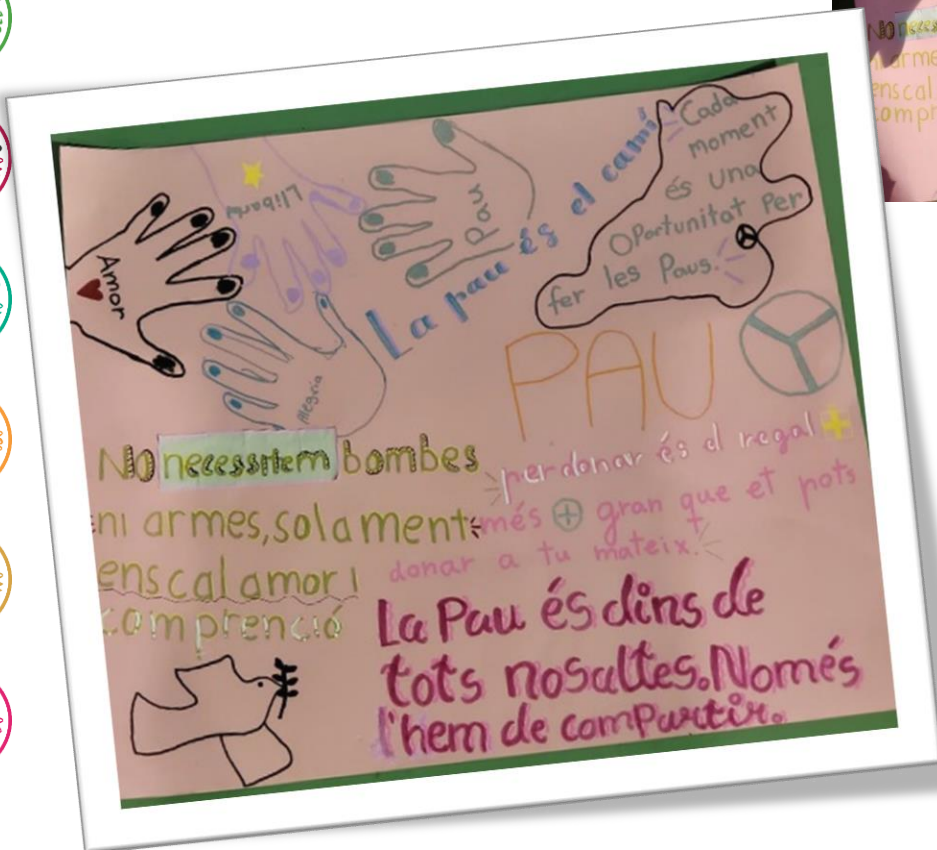 Amor
Pau
Alegria
La pau és el camí
Cada
moment
és una
oportunitat per
fer les Paus.
PAU
No necessitem bombes
ni armes, solament
ens cal amor i
comprenció
perdonar és el regal +
més + gran que et pots
donar a tu mateix.
La Pau és dins de
tots nosaltes. Només
l'hem de compartir.
ens cal